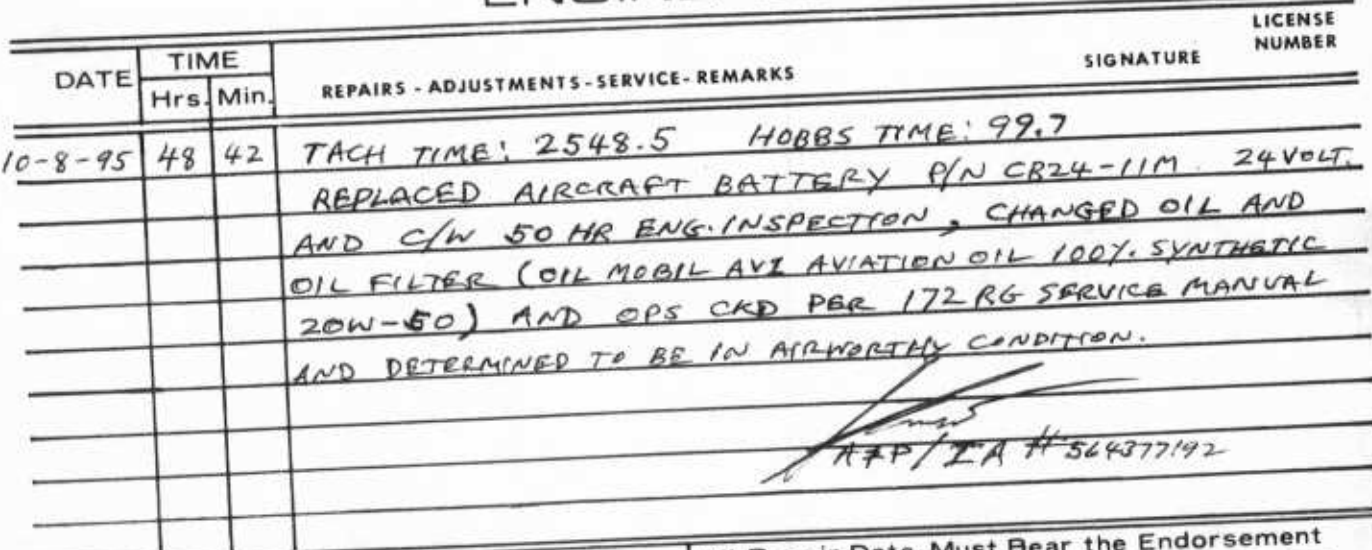 LICENSE
DATE TIME REPAIRS - ADJUSTMENTS - SERVICE - REMARKS SIGNATURE NUMBER
Hrs. Min.
10-8-95 48 42 TACH TIME: 2548.5 HOBBS TIME: 99.7
REPLACED AIRCRAFT BATTERY P/N CB24-11M. 24 VOLT.
AND C/W 50 HR ENG. INSPECTION, CHANGED OIL AND
OIL FILTER (OIL MOBIL AV1 AVIATION OIL 100% SYNTHETIC
20W-50) AND OPS CKD PER 172 RG SERVICE MANUAL
AND DETERMINED TO BE IN AIRWORTHY CONDITION.
A&P/IA # 564377192
Must Bear the Endorsement